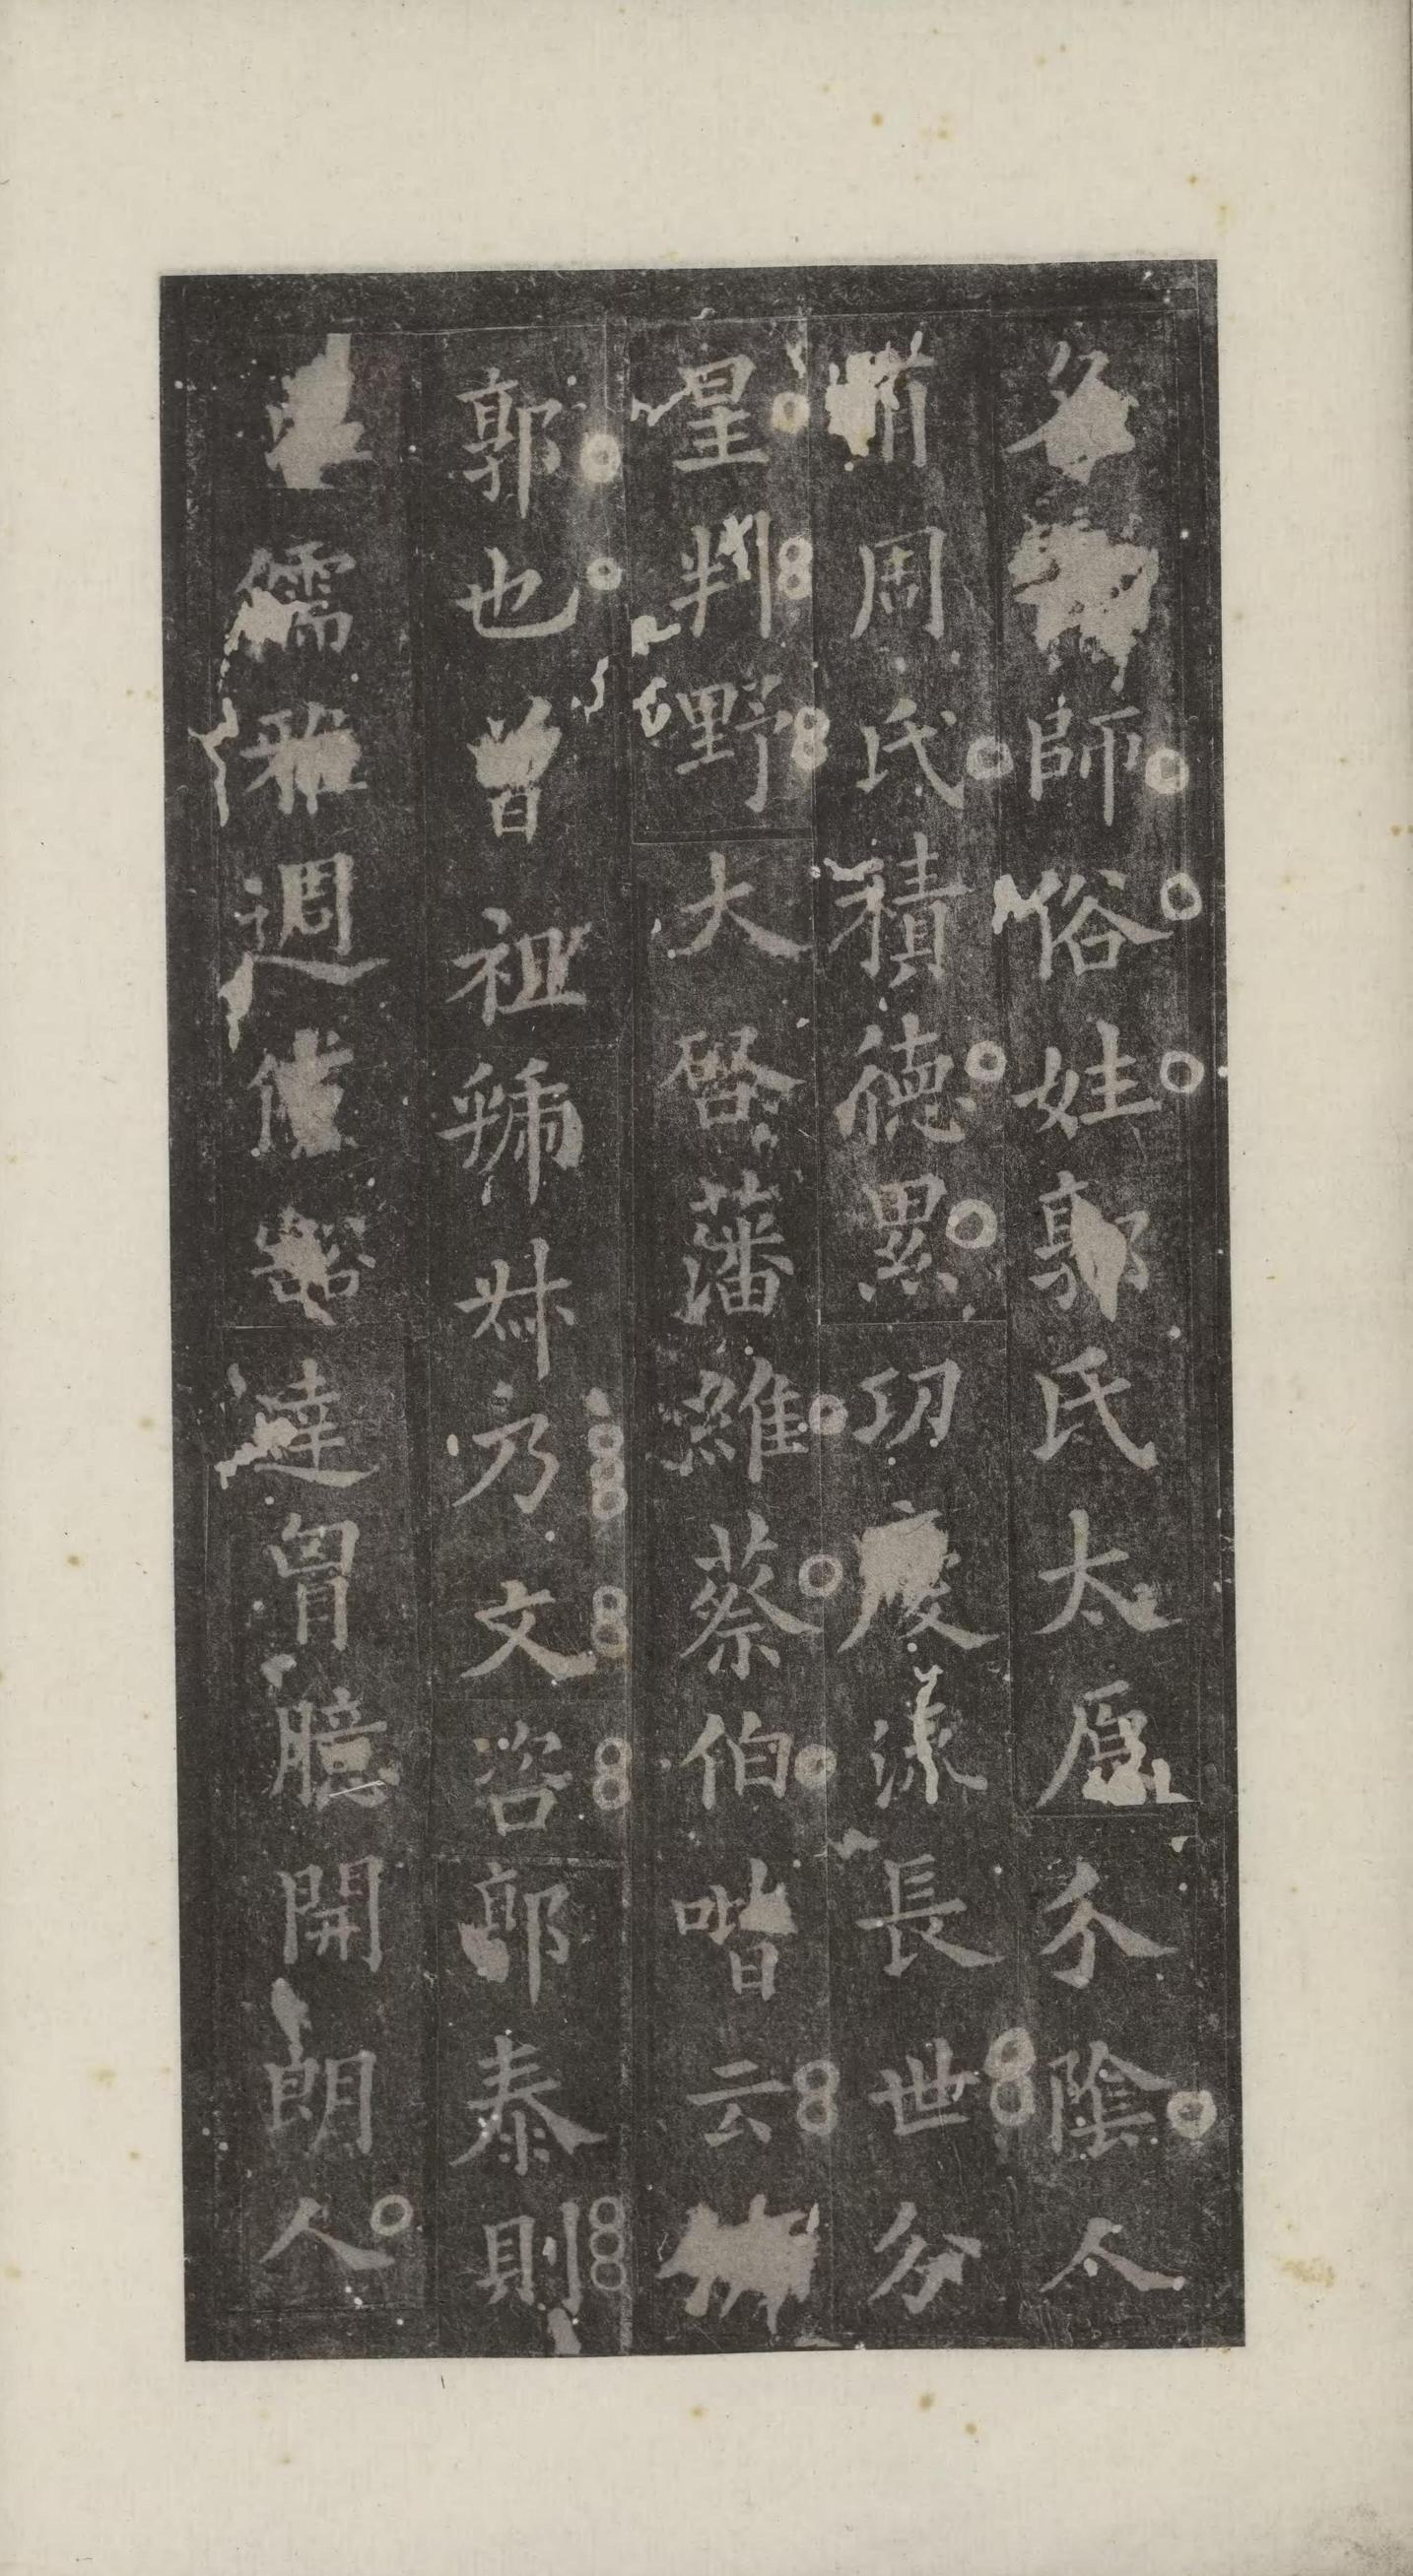 師俗姓郭氏太原介陰人
周氏積德累功慶漾長世分
星判野大啓藩維蔡伯喈云
郭也曾祖叔乃文咨郭泰則
儒雅週達胷臆開朗人